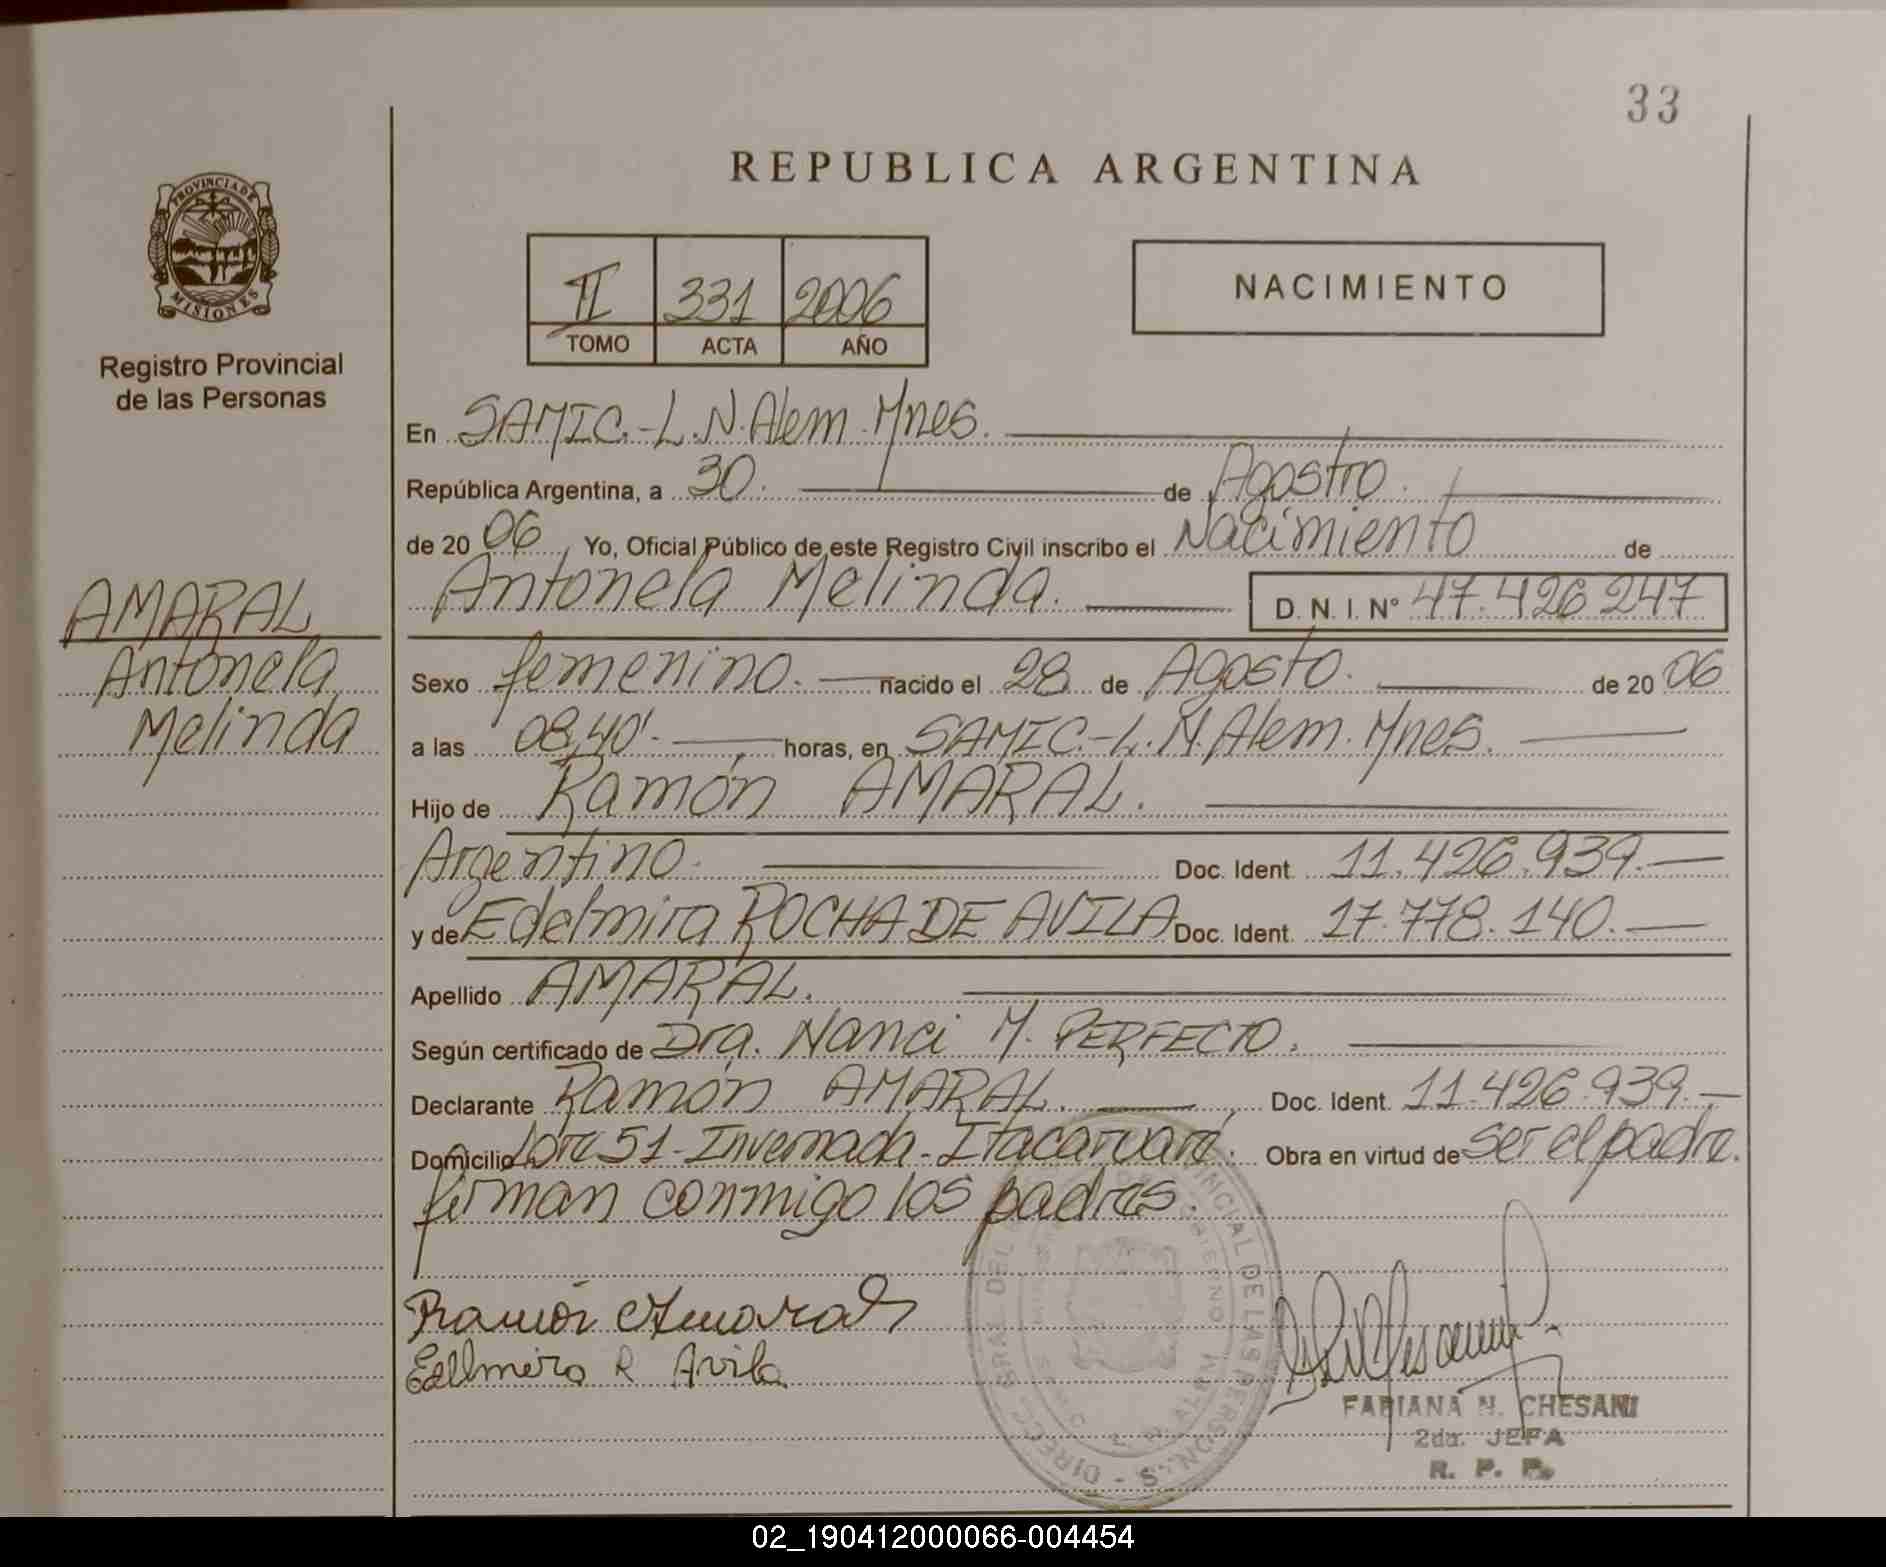 33
PROVINCIA DE
MISIONES
Registro Provincial
de las Personas
REPUBLICA ARGENTINA
II 331 2006
TOMO ACTA AÑO
NACIMIENTO
En SAMIC.-L.N.Alem.Mnes.
República Argentina, a 30. de Agosto.
de 20 06, Yo, Oficial Público de este Registro Civil inscribo el Nacimiento de
Antonela Melinda. D. N. I. N° 47.426.247
AMARAL
Antonela
Melinda
Sexo femenino. nacido el 28 de Agosto. de 20 06
a las 08,40'. horas, en SAMIC.-L.N.Alem.Mnes.
Hijo de Ramón AMARAL.
Argentino. Doc. Ident. 11.426.939.
y de Edelmira ROCHA DE AVILA Doc. Ident. 17.778.140.
Apellido AMARAL.
Según certificado de Dra. Nanci M. PERFECTO.
Declarante Ramón AMARAL. Doc. Ident. 11.426.939.
Domicilio Lote 51-Invernada-Itacaruaré. Obra en virtud de ser el padre.
firman conmigo los padres.
Ramón Amaral
Edelmira R Avila
FABIANA N. CHESANI
2da. JEFA
R. P. P.
02_190412000066-004454